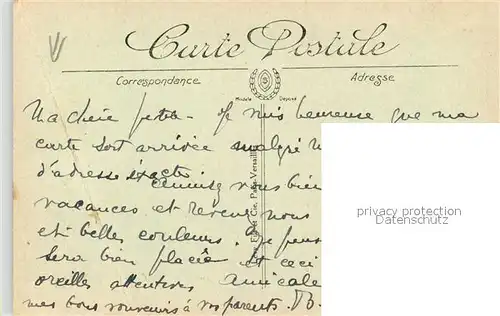 Carte Postale
Correspondance Adresse
Modèle Déposé
Ma chère petite - Je suis heureuse que ma
carte soit arrivée malgré
d'adresse exacte
vous bien
vacances et revenez nous
et belles couleurs. Je
sera bien placée et ceci
oreilles attentives Amicale
mes bons souvenirs à vos parents.
et Cie, Paris-Versailles
privacy protection
www.oldthing.de